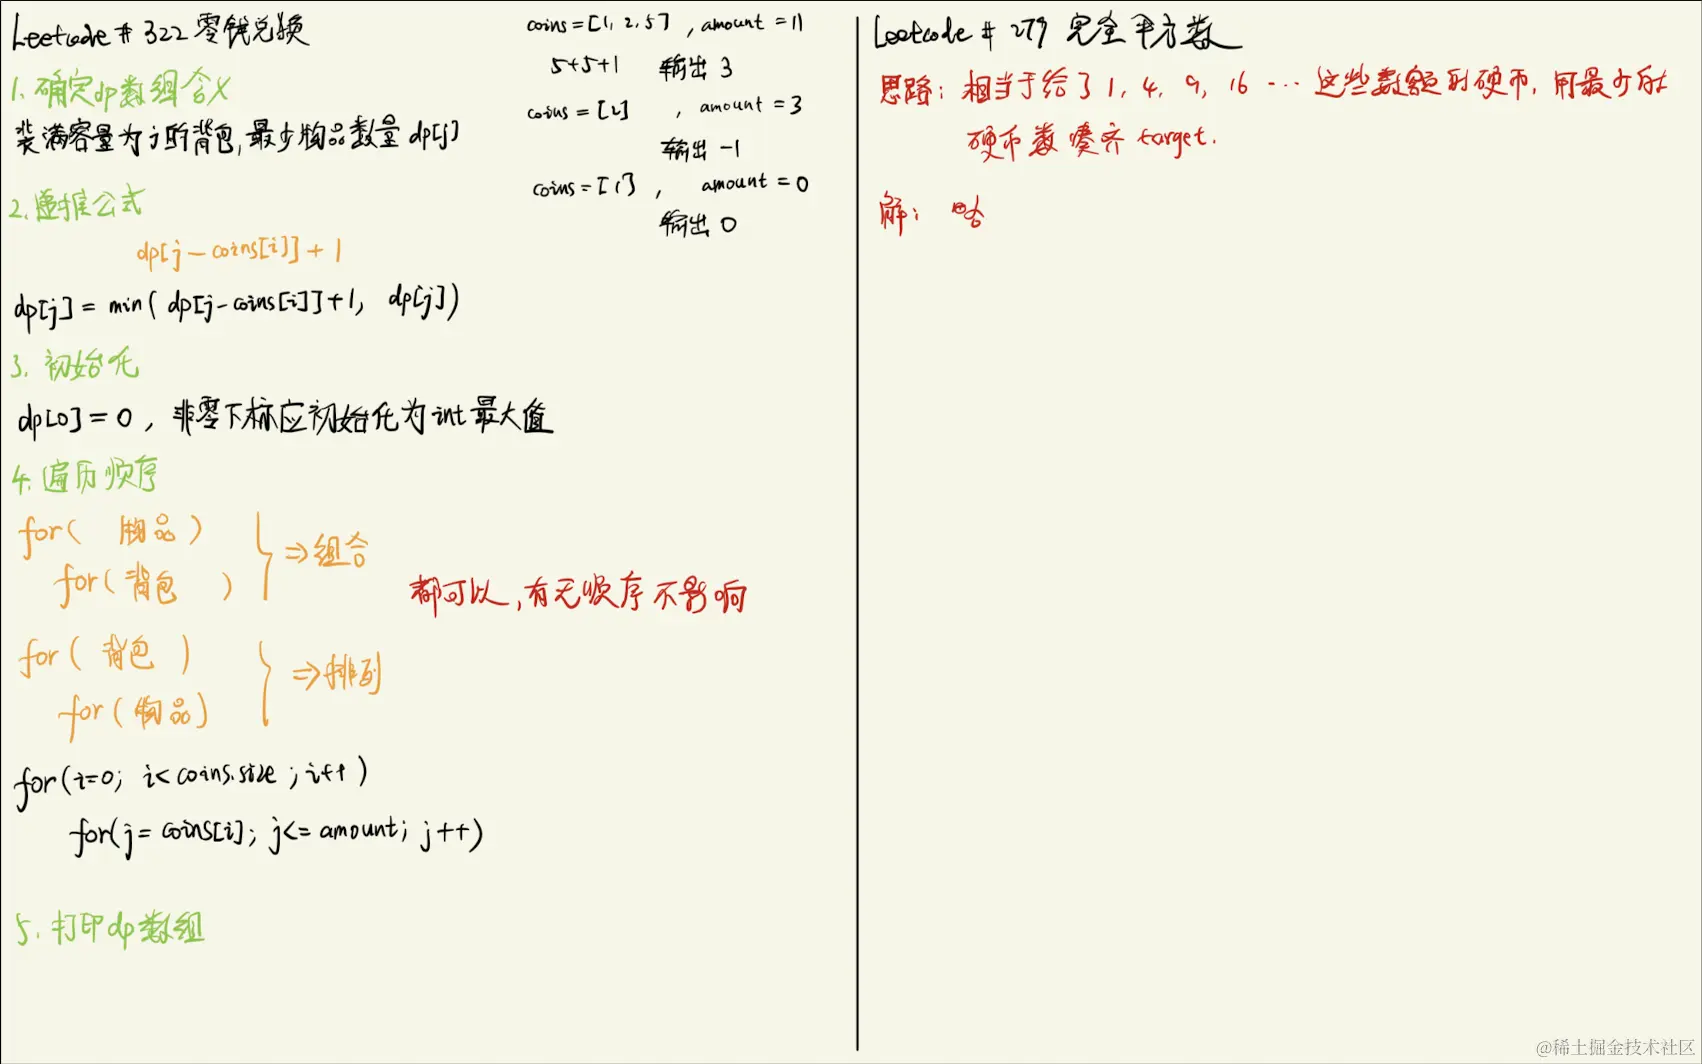 Leetcode # 322 零钱兑换
1. 确定dp数组含义
装满容量为j的背包,最少物品数量dp[j]
2.递推公式
dp[j-coins[i]]+1
dp[j] = min( dp[j-coins[i]]+1, dp[j])
3. 初始化
dp[0]=0, 非零下标应初始化为int最大值
4.遍历顺序
for( 物品)
for(背包 )
⇒组合
都可以,有无顺序不影响
for( 背包 )
for(物品)
⇒排列
for(i=0; i<coins.size ;i++)
for(j=coins[i]; j<=amount; j++)
5. 打印dp数组
coins=[1,2,5] ,amount=11
5+5+1 输出 3
coins = [2] , amount=3
输出 -1
coins=[1] , amount=0
输出 0
Leetcode # 279 完全平方数
思路: 相当于给了1, 4, 9, 16 … 这些数额的硬币, 用最少的
硬币数凑齐 target.
解: 略
@稀土掘金技术社区